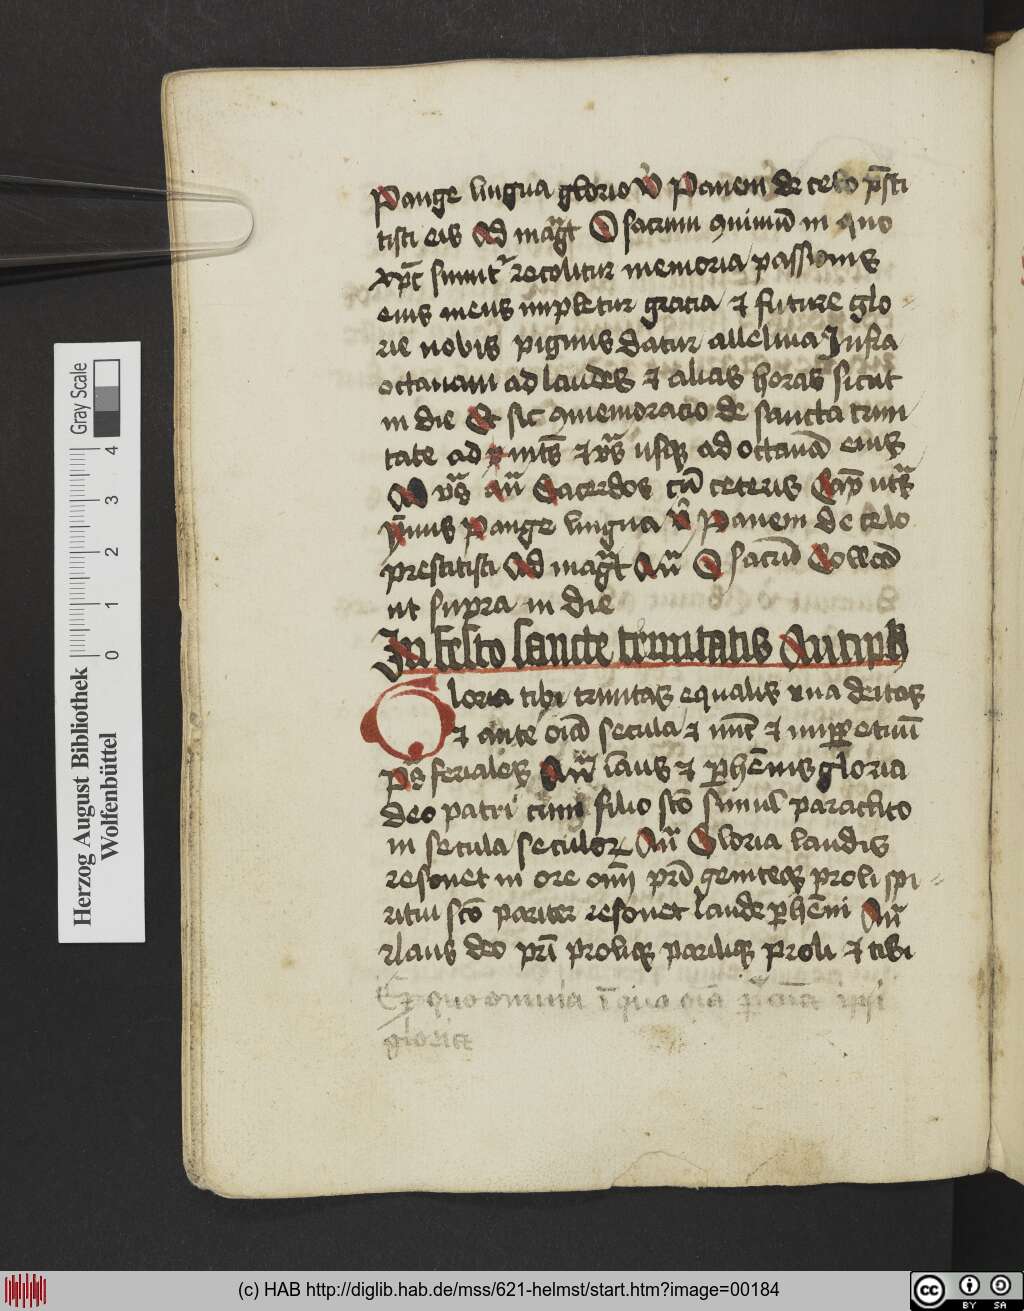 Pange lingua glorio V̉ Panem de celo p̄sti
tisti eis Ad mag̃t O sacrum ꝯuiuiū in quo
xp̄c sumit᷑ recolitur memoria passionis
eius mens impletur gracia et future glo
rie nobis pignus datur alleluia Infra
octauam ad laudes et alias horas sicut
in die Et sic ꝯmemoracio de sancta trini
tate ad et vs̄ usqꝫ ad octauā eius
vs̄ an̄ Sacerdos cū ceteris Cap̄
ympnus Pange lingua V̉ Panem de celo
prestitisti Ad mag̃t An̄ O sacrū Collcā
ut supra in die
In festo sancte trinitatis Antiph
Gloria tibi trinitas equalis vna deitas
et ante oīa secula et nūc et imꝑpetuū
p̄s feriales An̄ laus et ꝑhēnis gloria
deo patri cum filio scō simul paraclito
in secula seculoꝝ An̄ Gloria laudis
resonet in ore oīm pr̄i geniteqꝫ proli spi
ritui scō pariter resonet laude ꝑhēni An̄
laus deo pr̄i proliqꝫ pariliqꝫ proli et tibi
Ex quo omnia ī quo oīa ꝑ oīa ipsi
gloria
Herzog August Bibliothek
Wolfenbüttel
0 1 2 3 4
Gray Scale
(c) HAB http://diglib.hab.de/mss/621-helmst/start.htm?image=00184
cc BY SA